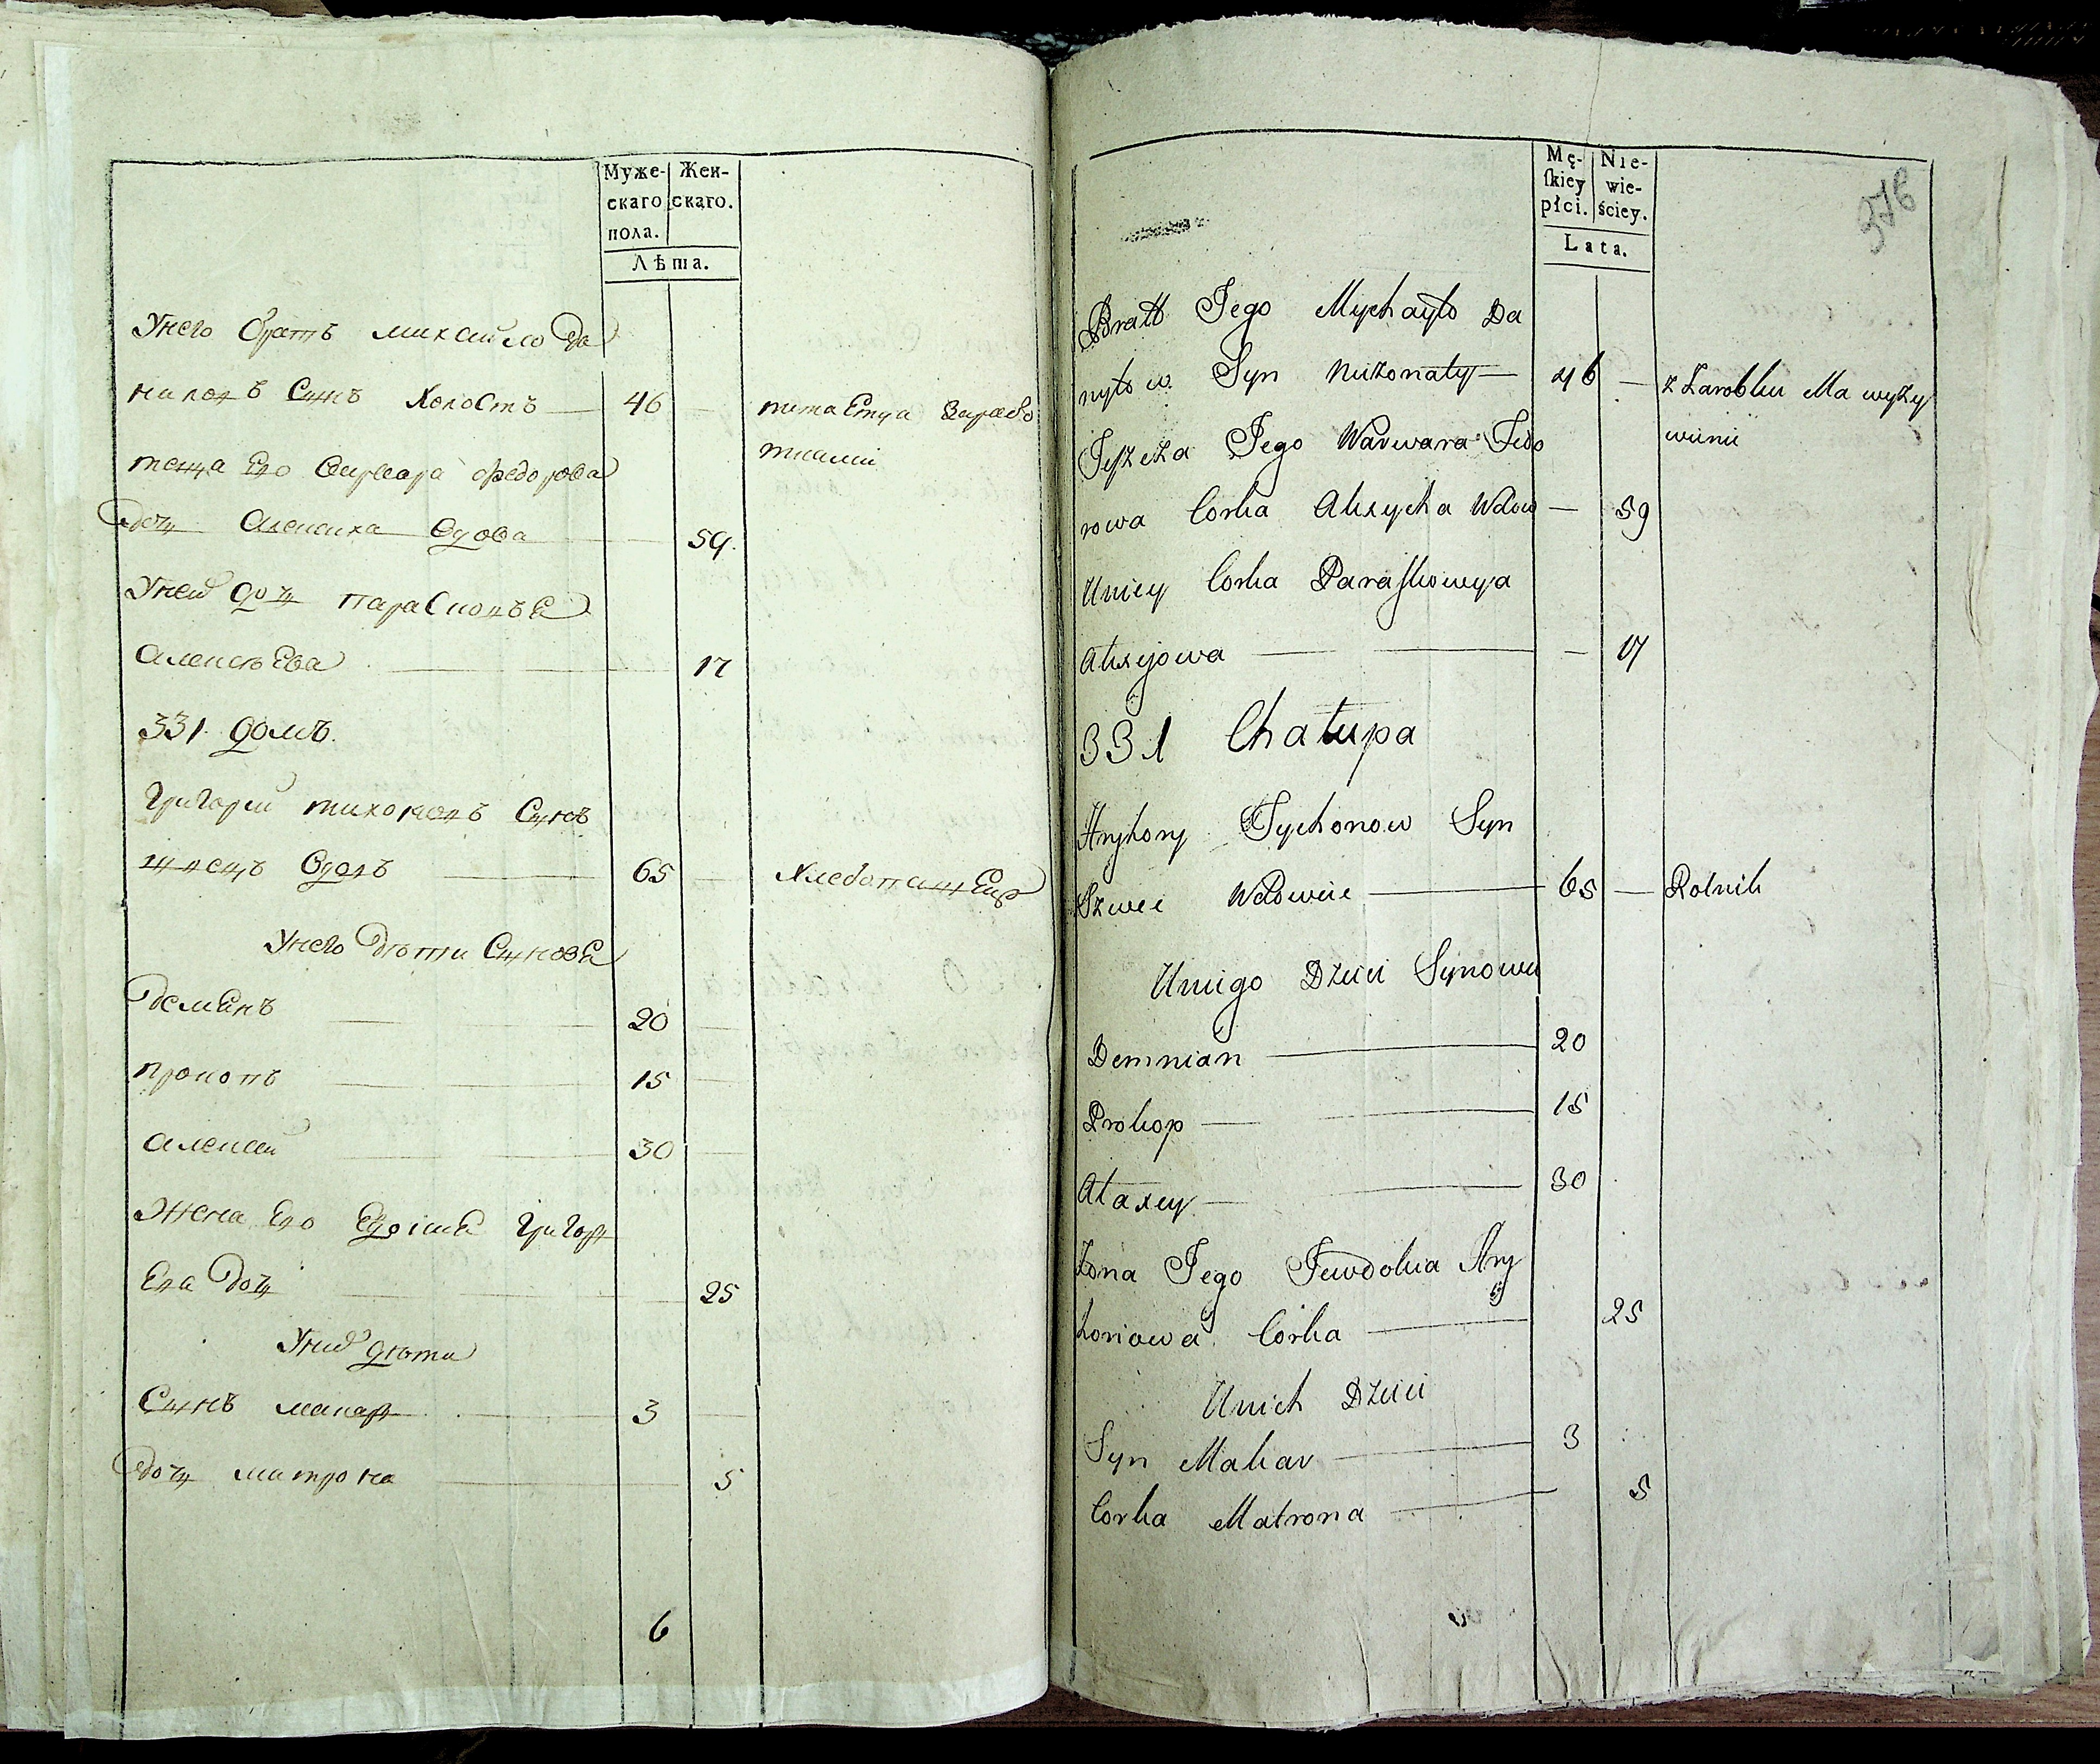 Муже- Жен-
скаго скаго.
пола.
Лѣта.
Унего братъ михайло Да
ниловъ Сынъ Холостъ 46 питается зарабо
тками
теща Его варвара федорова
дочь Алексиха вдова 59.
Унеи дочь параСковѣя
Алексѣева 17
331 домъ.
Григореи тихоновъ Сынъ
швецъ вдовъ 65 Хлебопашецъ
Унего дѣти Сыновя
демянъ 20
прокопъ 15
алексеи 30
Жена Его Евдокия Григор
Ева дочь 25
Унихъ дѣти
Сынъ макаръ 3
дочь матрона 5
6
Mę- Nie-
ſkiey wie-
płci. ściey.
Lata.
376
Bratt Jego Mychayło Da
nyłow Syn nieżonaty 46 z Zarobku Ma wyży
wienie
Teszcza Jego Warwara Fedo
rowa Corka Alexycha Wdow 59
Uniey Corka Paraſkowyja
Alexejowa 17
331 Chałupa
Hryhory Tychonow Syn
Szwec Wdowiec 65 Rolnik
Uniego Dzieci Synowie
Demnian 20
Prokop 15
Alaxey 30
Żona Jego Jewdokia Hry
horiowa Corka 25
Unich Dzieci
Syn Makar 3
Corka Matrona 5